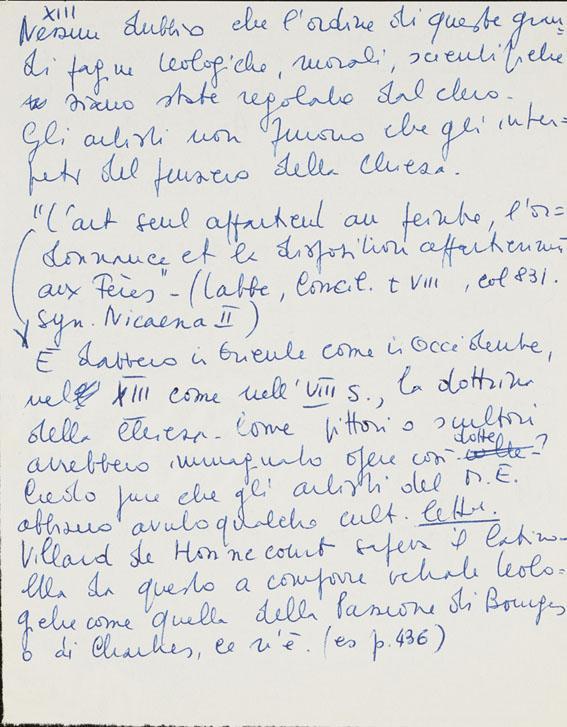 XIII
Nessun dubbio che l'ordine di queste gran=
di pagine teologiche, morali, scientifiche
siano state regolato dal clero.
Gli artisti non furono che gli inter=
preti del pensiero della Chiesa.
"L'art seul appartient au peintre, l'or=
donnance et la disposition appartiennent
aux Pères" - (Labbe, Concil. t VIII, col 831.
Syn. Nicaena II)
E davvero in Oriente come in Occidente,
nel XIII come nell'VIII s., la dottrina
della Chiesa. Come pittori o scultori
avrebbero immaginato opere così dotte?
Credo pure che gli artisti del M.E.
abbiano avuto qualche cult. letter.
Villard de Honnecourt sapeva il latino.
Ma da questo a comporre vetrate teolo-
giche come quella della Passione di Bourges
o di Chartres, ce n'è. (es p. 436)